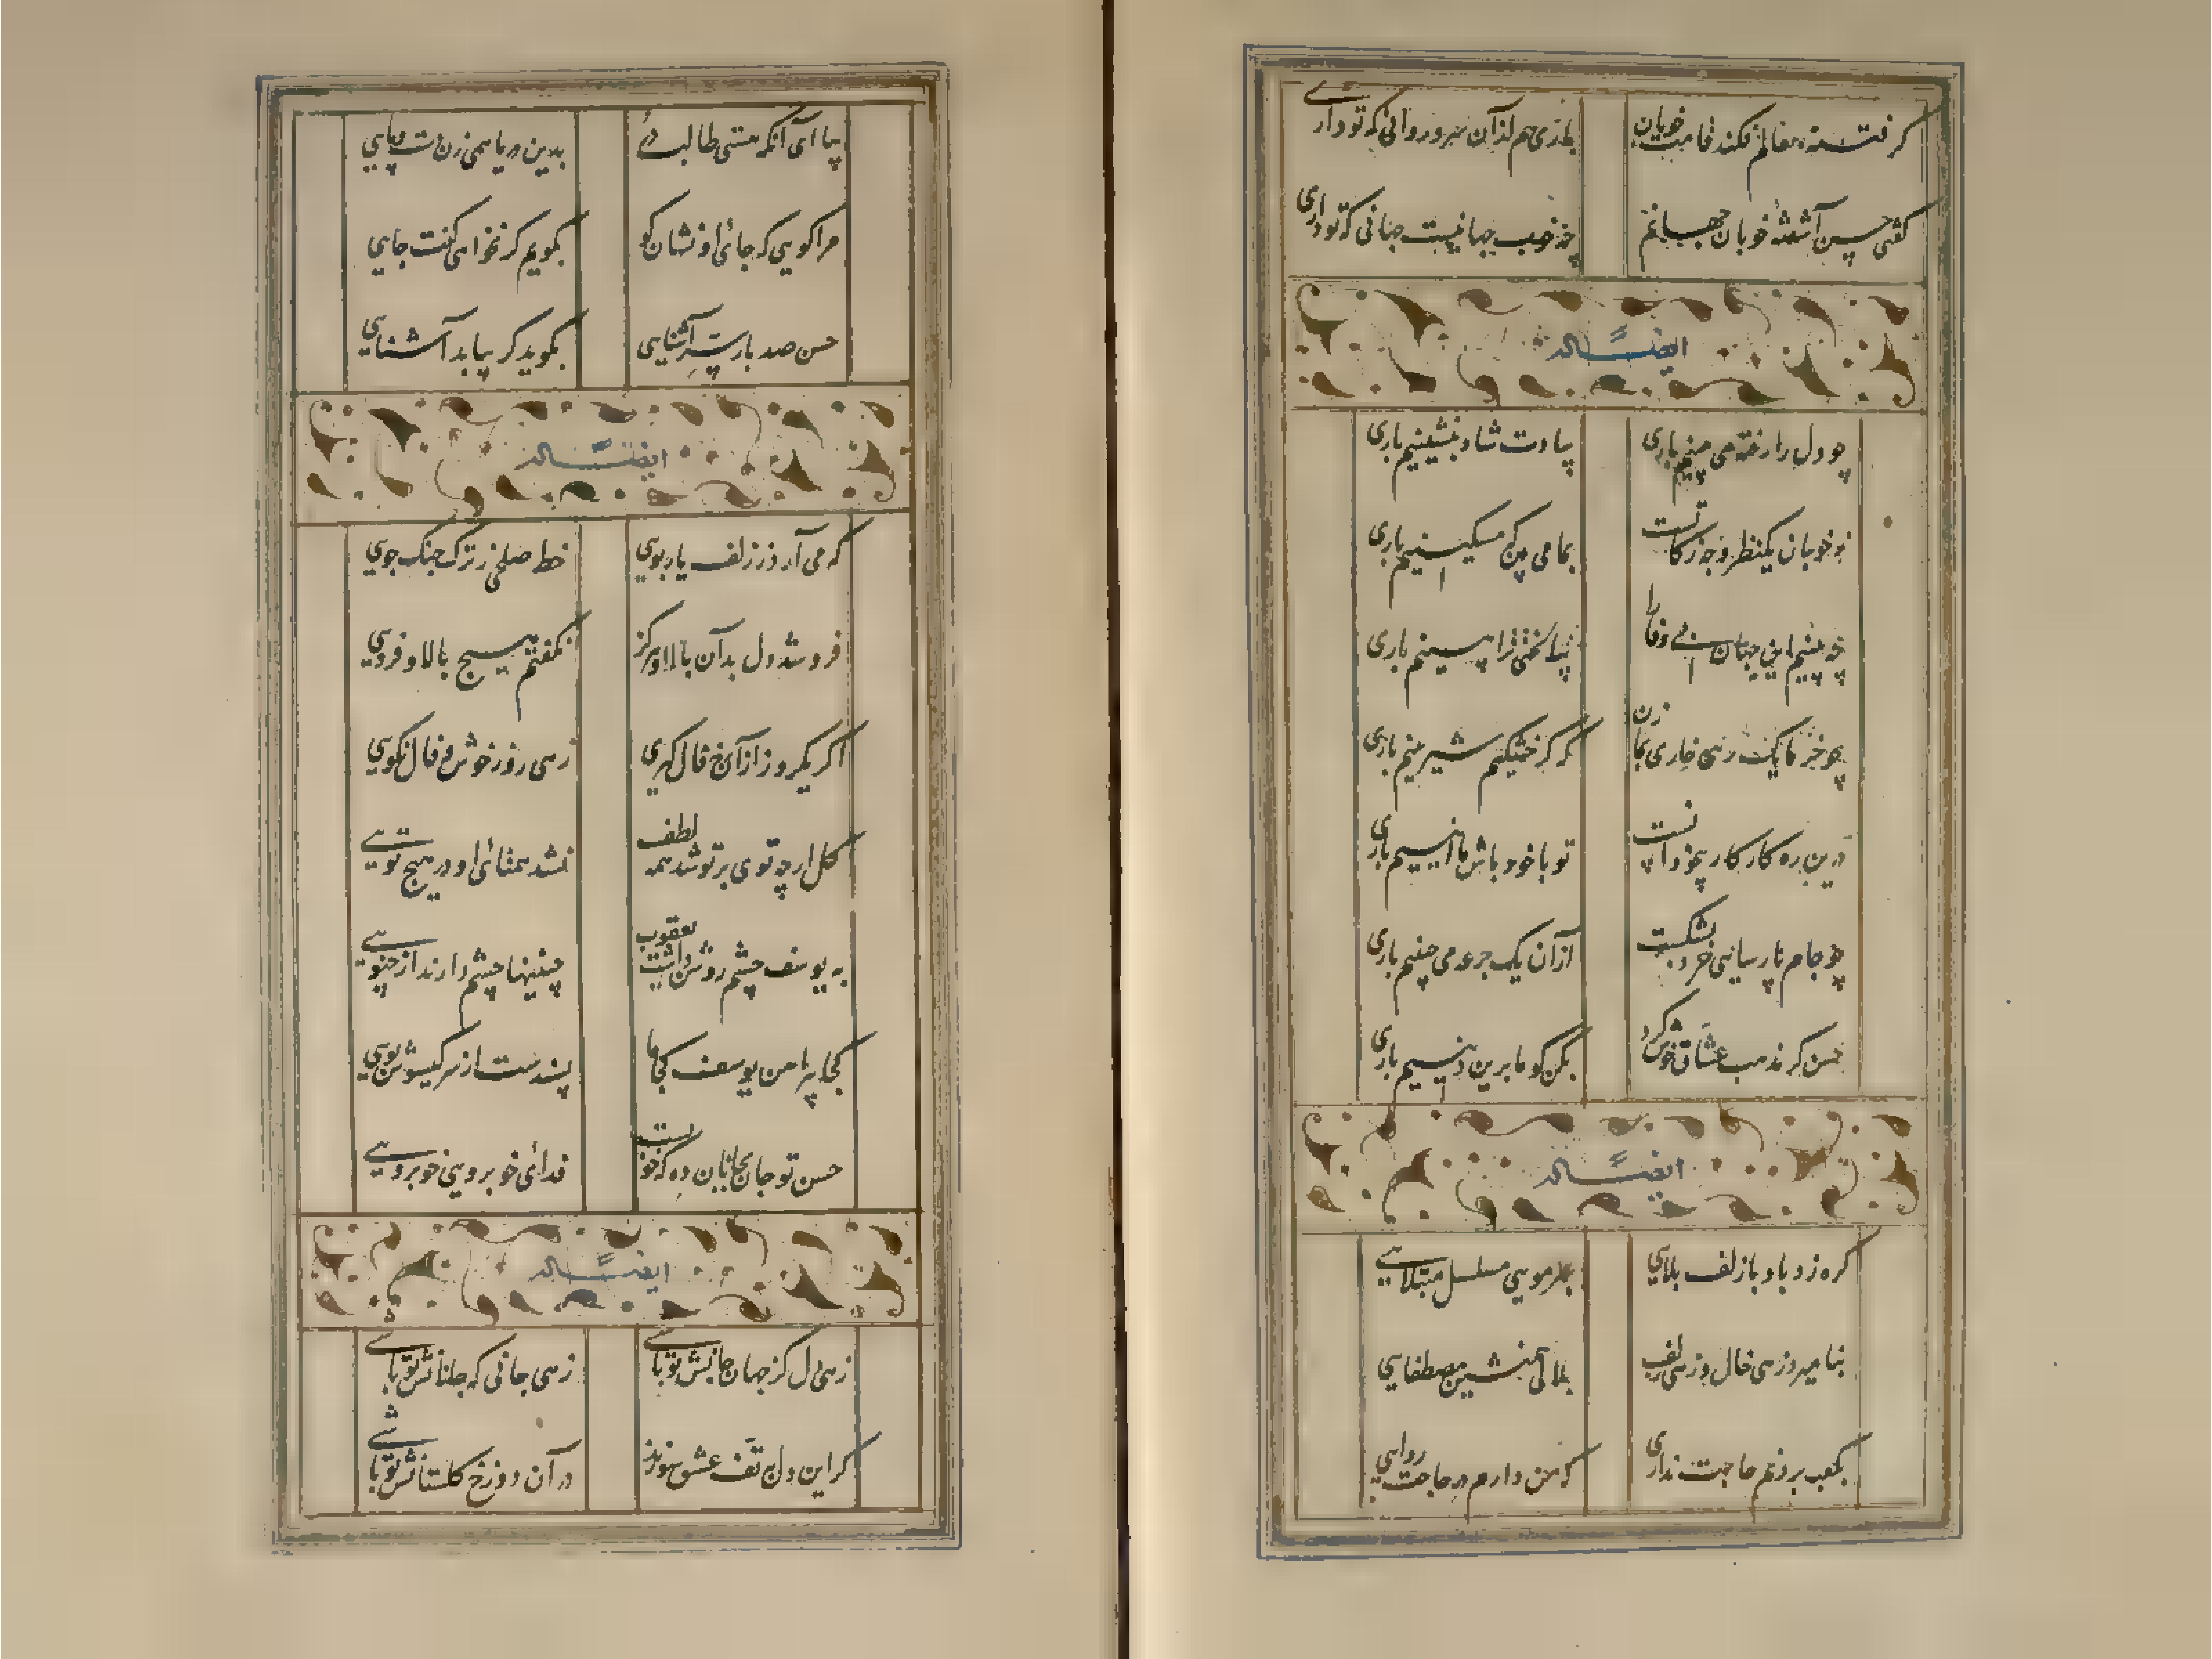 گر فتنه مقالم فکند قامت خوبان
بازی هم از آن سرو روانی که تو داری
گفتی حسن آشفتهٔ خوبان جهانم
چه خوب جهانیست جهانی که تو داری
ایضا له
چو دل را رخنه می بینیم باری
بیا دت شاد بنشینیم باری
ز خوبان یکنظر وجه زکاتست
بما می ده که مسکینیم باری
چه بینیم این جهان بی وفا را
بیا تختی ترا بینیم باری
تو با خود باش ما اینیم باری
چو جام پارسایی خرد بشکست
از آن یک جرعه می چینیم باری
حسن گر مذهب عشاق خوش کرد
مکن گو ما برین دینیم باری
ایضا له
گره زد باد باز زلف بلایی
بهر مویی مسلسل مبتلایی
بنامیزد زهی خال و زهی زلف
بلالی همنشین مصطفایی
بکعبه بردنم حاجت نداری
که من دارم در حاجت روایی
بیا ای آنکه هستی طالب در
بدین دریا همی زن دست و پایی
مرا گویی که جائی او نشان گو
بگویم گر نخواهی گفت جایی
حسن صد بار شد آشنایی
بگوید گر بیابد آشنایی
ایضا له
که می آرد ز زلف یار بویی
خط صلحی ز ترک جنگ جویی
فرو شد دل بدان بالا و هرگز
نگفتم هیچ بالا و فرویی
اگر یکروز از آن رخ فال گیری
زهی روز خوش و فال نکویی
گل ار چه توی بر تو شد همه لطف
نشد همتائی او در هیچ تویی
به یوسف چشم روشن داشت یعقوب
چنینها چشم دارند از چنویی
کجا پیراهن یوسف کجا ما
پسندست از سر گیسوش بویی
حسن تو جان بجانان ده که خوبست
فدائی خوبرویی خوبرویی
ایضا له
زهی دل کز جهان جانش تو باشی
زهی جانی که جانانش تو باشی
گر این دل به تف عشق سوزند
در آن دوزخ گلستانش تو باشی